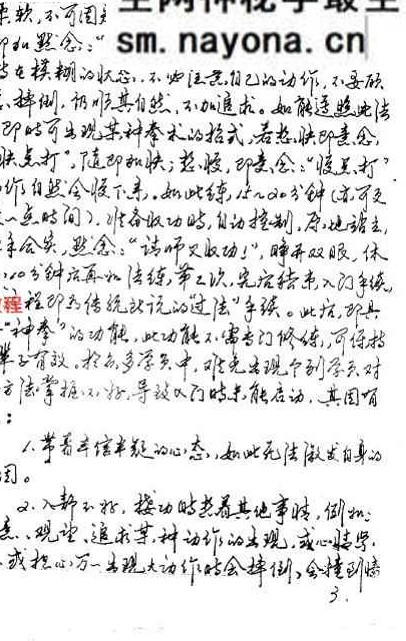 全网神秘学最全
sm.nayona.cn
柔软,不可固
即和默念:“
持在模糊的状态,不必注意自己的动作,不要顾
摔倒,仍顺其自然,不加追求。如能遵照此法
即时可出现某种拳术的招式,若想快即意念,
快点打”,随即加快;想慢,即意念:“慢点打”
作自然会慢下来,如此练,15~20分钟(亦可更
一点时间),准备收功时,自动控制,原地站立,
手合实,默念:“请师父收功!”,睁开双眼,休
10分钟后再如法练,第二次,完后结束入门手续,
程 程即为传统所说的“过法”手续。此后,即具
“神拳”的功能,此功能不需专门修练,可保持
辈子有效。于众多学员中,难免出现个别学员对
方法掌握不好,导致入门时未能启动,其因有
:
1.带着半信半疑的心态,如此无法激发自身的
因。
2.入静不好,接功时想着其他事情,例如:
意、观望、追求某种动作的出现,或心情紧.
或担心万一出现大动作时会摔倒,会撞到墙
3.